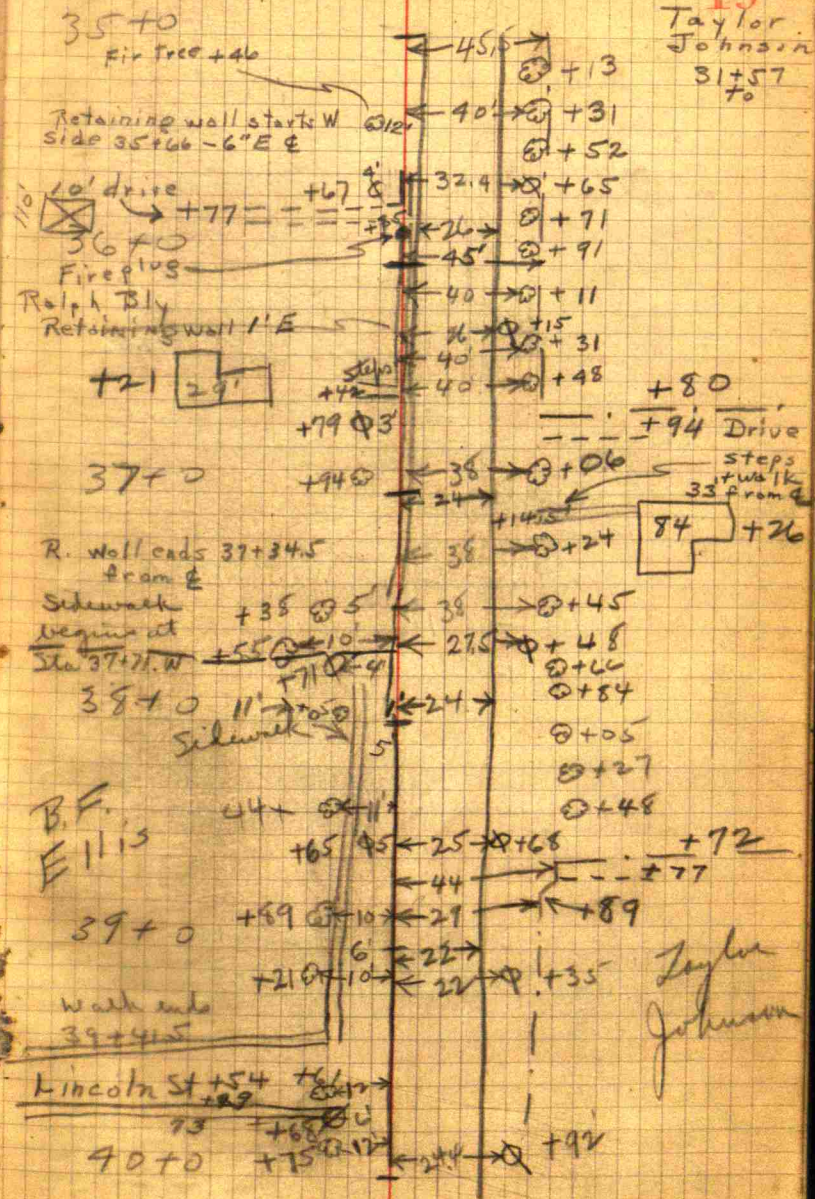 35+0
Taylor
Johnson
31+57
to
Fir tree +46
45.5
+13
Retaining wall starts W
side 35+66 - 6" E ℄
12'
40'
+31
+52
10' drive
110'
+67
4'
8
32.4
+65
+77
26
+71
36+0
45'
+91
Fire plug
40
+11
Ralph Bly
Retaining wall 1' E
+15
40'
+31
+21
29'
steps
+42
40
+48
+79
3'
+80
+94 Drive
37+0
+94
38
+06
steps
+walk
33' from ℄
24
+14.5
84
+26
38
+24
R. wall ends 37+34.5
from ℄
Sidewalk
begins at
Sta 37+71. W
+38
5'
38
+45
+55
10'
27.5
+48
+71
4'
+66
+84
38+0
11'
+05
1'
24
Sidewalk
5
+05
+27
B.F.
Ellis
44+
11'
+48
+65
5
25
+68
+72
44
+77
39+0
+89
10
29
+89
6'
22
+21
10'
22
+35
Taylor
Johnson
walk ends
39+41.5
Lincoln St +54
12
73
+68
6'
40+0
+75
12
24.4
+92